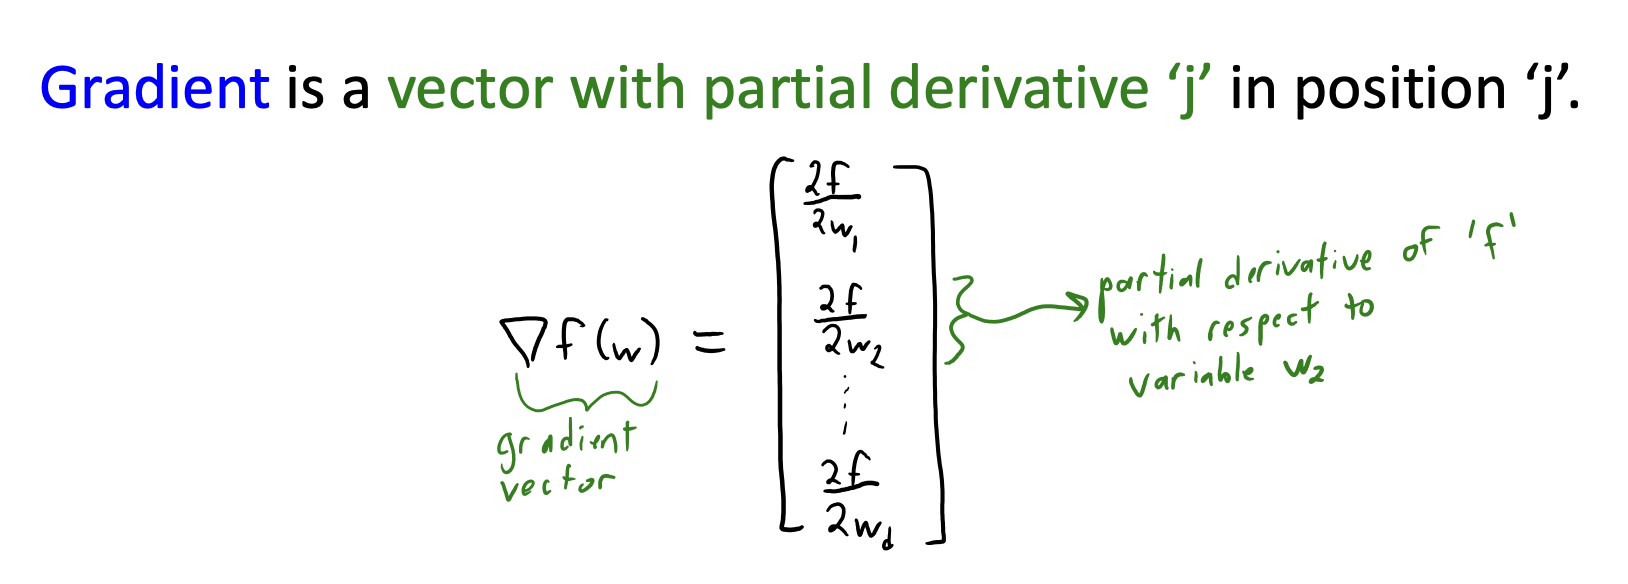 Gradient is a vector with partial derivative ‘j’ in position ‘j’.
∇f(w) = [ ∂f/∂w₁
∂f/∂w₂
⋮
∂f/∂w_d ]
gradient
vector
partial derivative of 'f'
with respect to
variable w₂